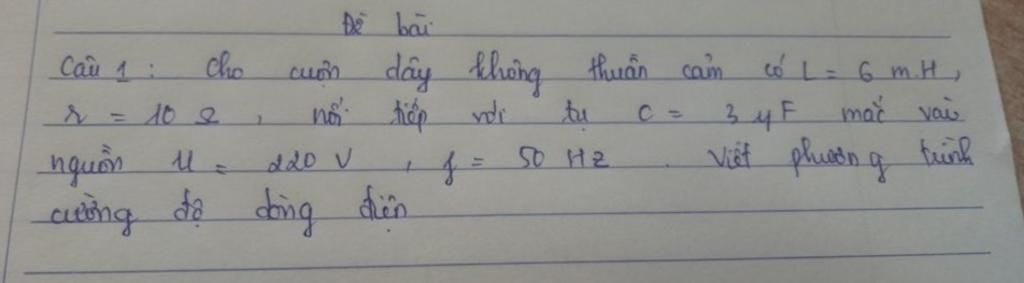 Đề bài
Câu 1 : Cho cuộn dây không thuần cảm có L = 6 m.H,
r = 10 Ω , nối tiếp với tụ C = 3 μF mắc vào
nguồn U = 220 V , f = 50 Hz . Viết phương trình
cường độ dòng điện